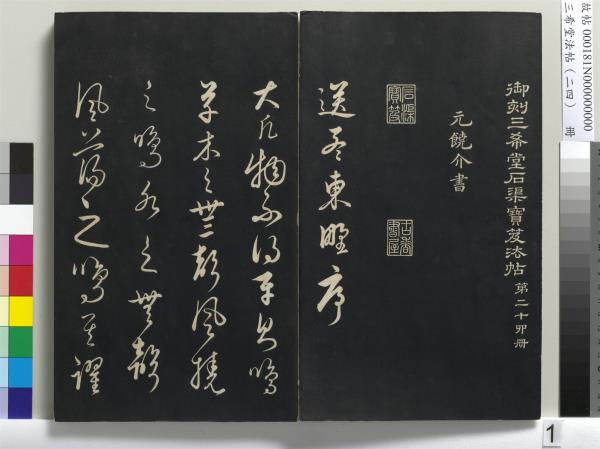 故帖 000181N000000000
三希堂法帖（二四） 冊
御刻三希堂石渠寶笈法帖 第二十四冊
元饒介書
石渠寶笈
古香書屋
送孟東野序
大凡物不得平則鳴
草木之無聲風撓
之鳴水之無聲
風蕩之鳴其躍
1